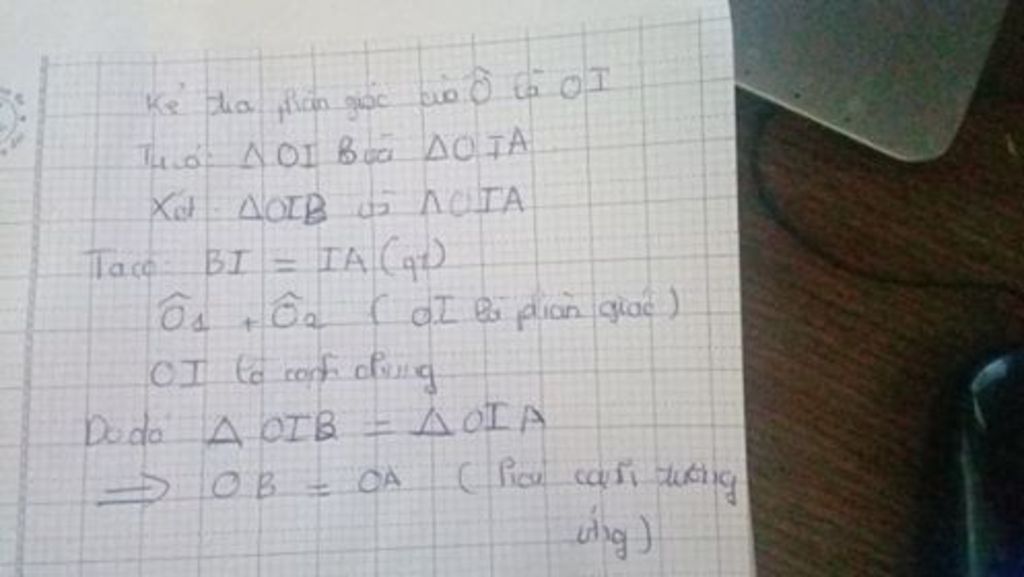 Kẻ tia phân giác của Ô là OI
ΔOIB và ΔOIA
Xét ΔOIB và ΔOIA
Ta có BI = IA (gt)
Ô1 + Ô2 ( OI là phân giác )
OI là cạnh chung
Do đó Δ OIB = Δ OIA
⟹ OB = OA ( cạnh tương
ứng )